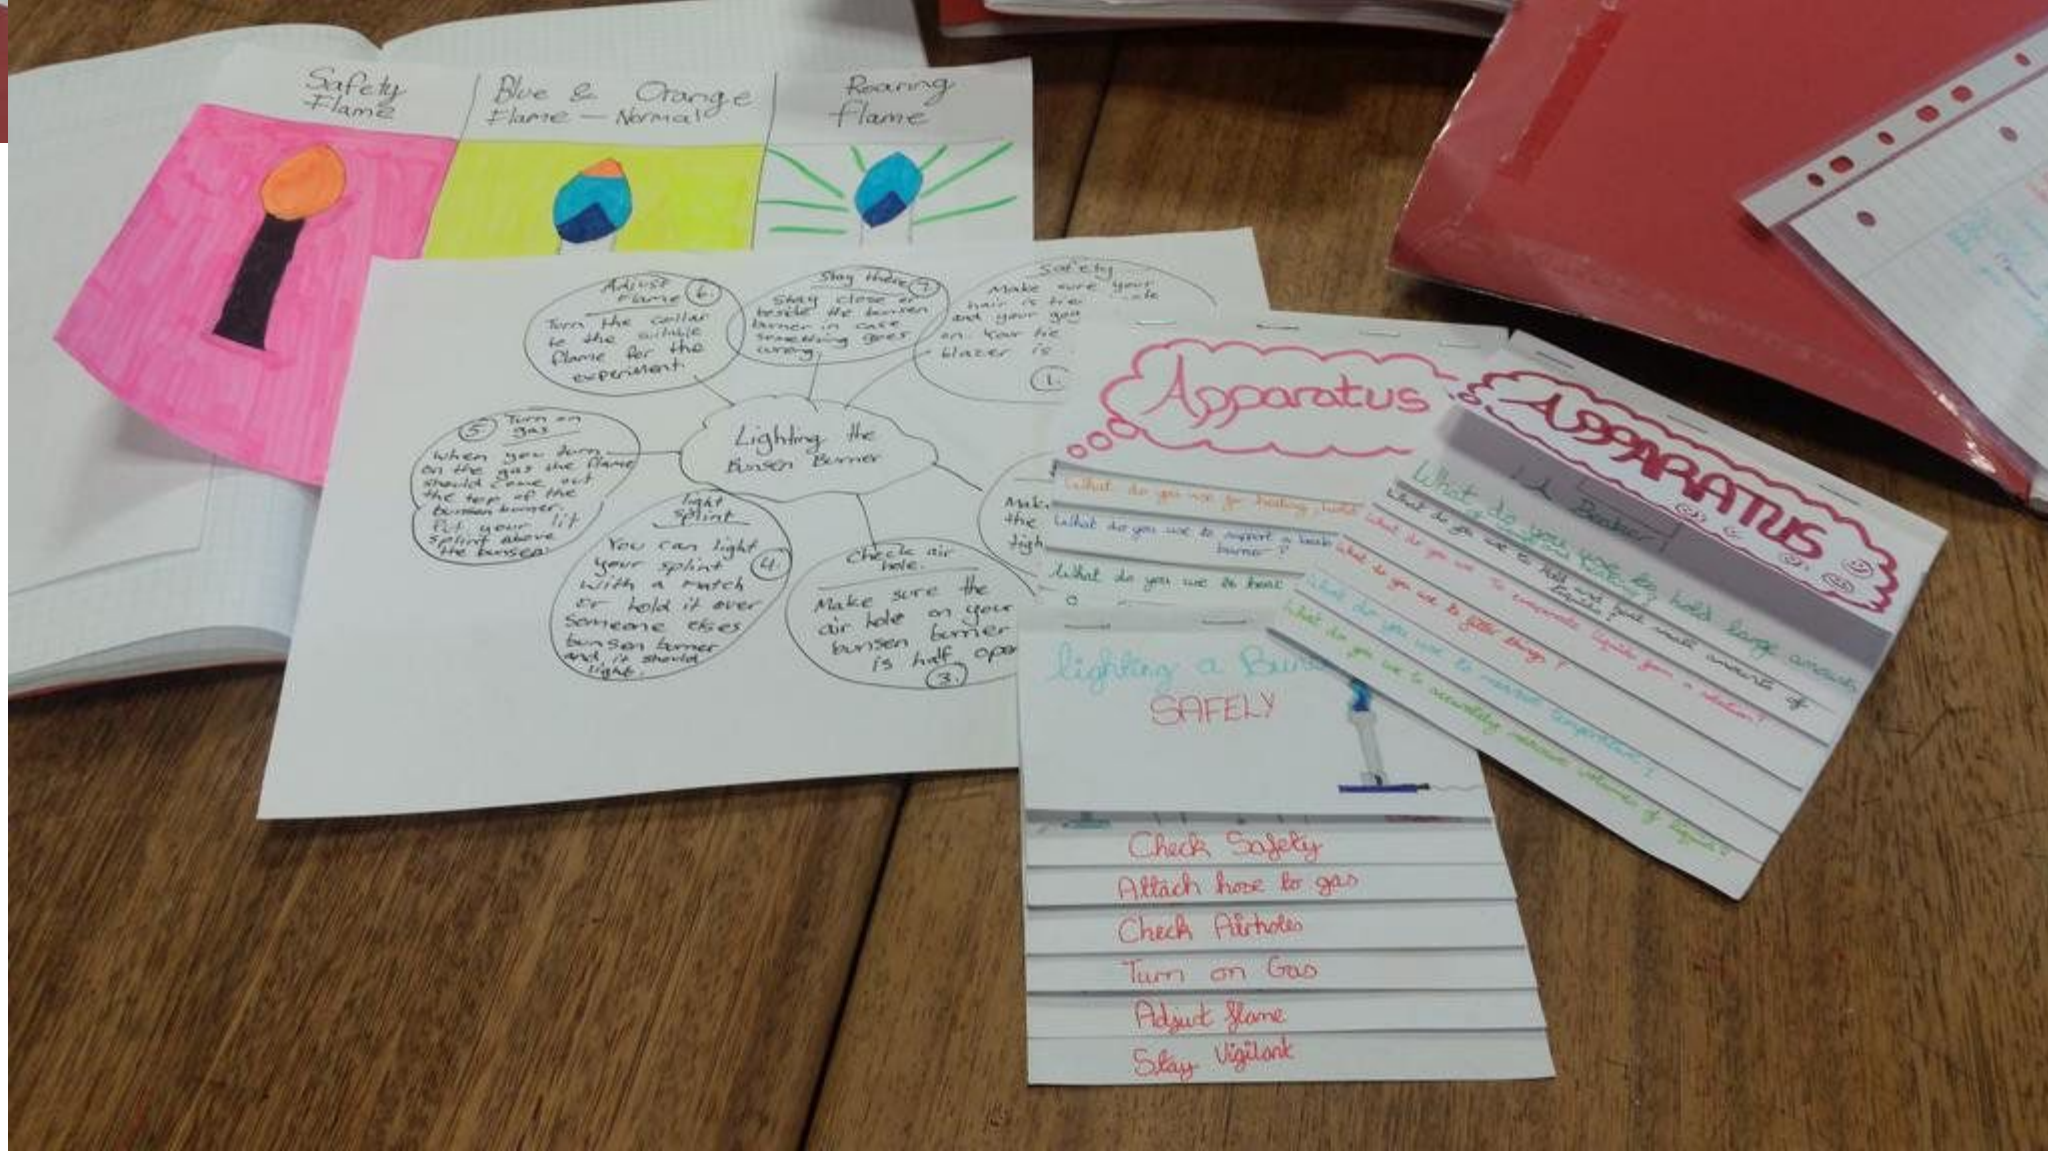 Safety
Flame
Blue & Orange
Flame - Normal
Roaring
flame
Adjust
Flame 6.
Turn the collar
to the suitable
flame for the
experiment.
Stay there 7.
Stay close or
beside the bunsen
burner in case
something goes
wrong
Safety
Make sure your
hair is tie
and your gog
on. Your tie
blazer is
1.
5. Turn on
gas
When you turn
on the gas the flame
should come out
the top of the
bunsen burner.
Put your lit
splint above
the bunsen.
Lighting the
Bunsen Burner
light
splint
You can light
your splint 4.
with a match
or hold it over
someone elses
bunsen burner
and it should
light.
Check air
hole.
Make sure the
air hole on your
bunsen burner
is half open
3.
Mak
the
tigh
Apparatus
What do you use for heating,
What do you use to support a
burner?
What do you use to heat
APPARATUS
A Beaker
What do you use to hold large amounts
What do you use to hold and heat small amounts of
liquids
What do you use to evaporate liquids from a solution?
What do you use to filter things?
What do you use to measure temperature?
What do you use to accurately measure volumes of liquids?
lighting a Buns
SAFELY
Check Safety
Attach hose to gas
Check Airholes
Turn on Gas
Adjust flame
Stay Vigilant